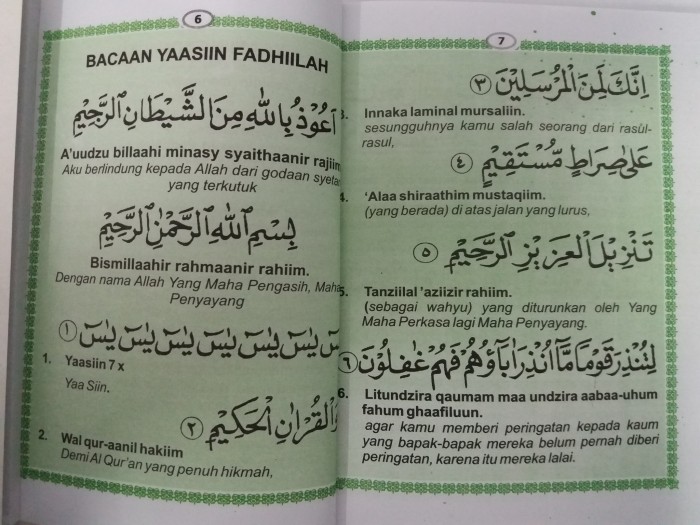 6
BACAAN YAASIIN FADHIILAH
اَعُوْذُ بِاللّٰهِ مِنَ الشَّيْطَانِ الرَّجِيْمِ
A'uudzu billaahi minasy syaithaanir rajiim
Aku berlindung kepada Allah dari godaan syetan
yang terkutuk
بِسْمِ اللّٰهِ الرَّحْمٰنِ الرَّحِيْمِ
Bismillaahir rahmaanir rahiim.
Dengan nama Allah Yang Maha Pengasih, Maha
Penyayang
يٰسٓ يٰسٓ يٰسٓ يٰسٓ يٰسٓ يٰسٓ يٰسٓ ١
1. Yaasiin 7 x
Yaa Siin.
وَالْقُرْاٰنِ الْحَكِيْمِ ٢
2. Wal qur-aanil hakiim
Demi Al Qur'an yang penuh hikmah,
7
اِنَّكَ لَمِنَ الْمُرْسَلِيْنَ ٣
3. Innaka laminal mursaliin.
sesungguhnya kamu salah seorang dari rasul-
rasul,
عَلٰى صِرَاطٍ مُّسْتَقِيْمٍ ٤
4. 'Alaa shiraathim mustaqiim.
(yang berada) di atas jalan yang lurus,
تَنْزِيْلَ الْعَزِيْزِ الرَّحِيْمِ ٥
5. Tanziilal 'aziizir rahiim.
(sebagai wahyu) yang diturunkan oleh Yang
Maha Perkasa lagi Maha Penyayang.
لِتُنْذِرَ قَوْمًا مَّآ اُنْذِرَ اٰبَاۤؤُهُمْ فَهُمْ غٰفِلُوْنَ ٦
6. Litundzira qaumam maa undzira aabaa-uhum
fahum ghaafiluun.
agar kamu memberi peringatan kepada kaum
yang bapak-bapak mereka belum pernah diberi
peringatan, karena itu mereka lalai.